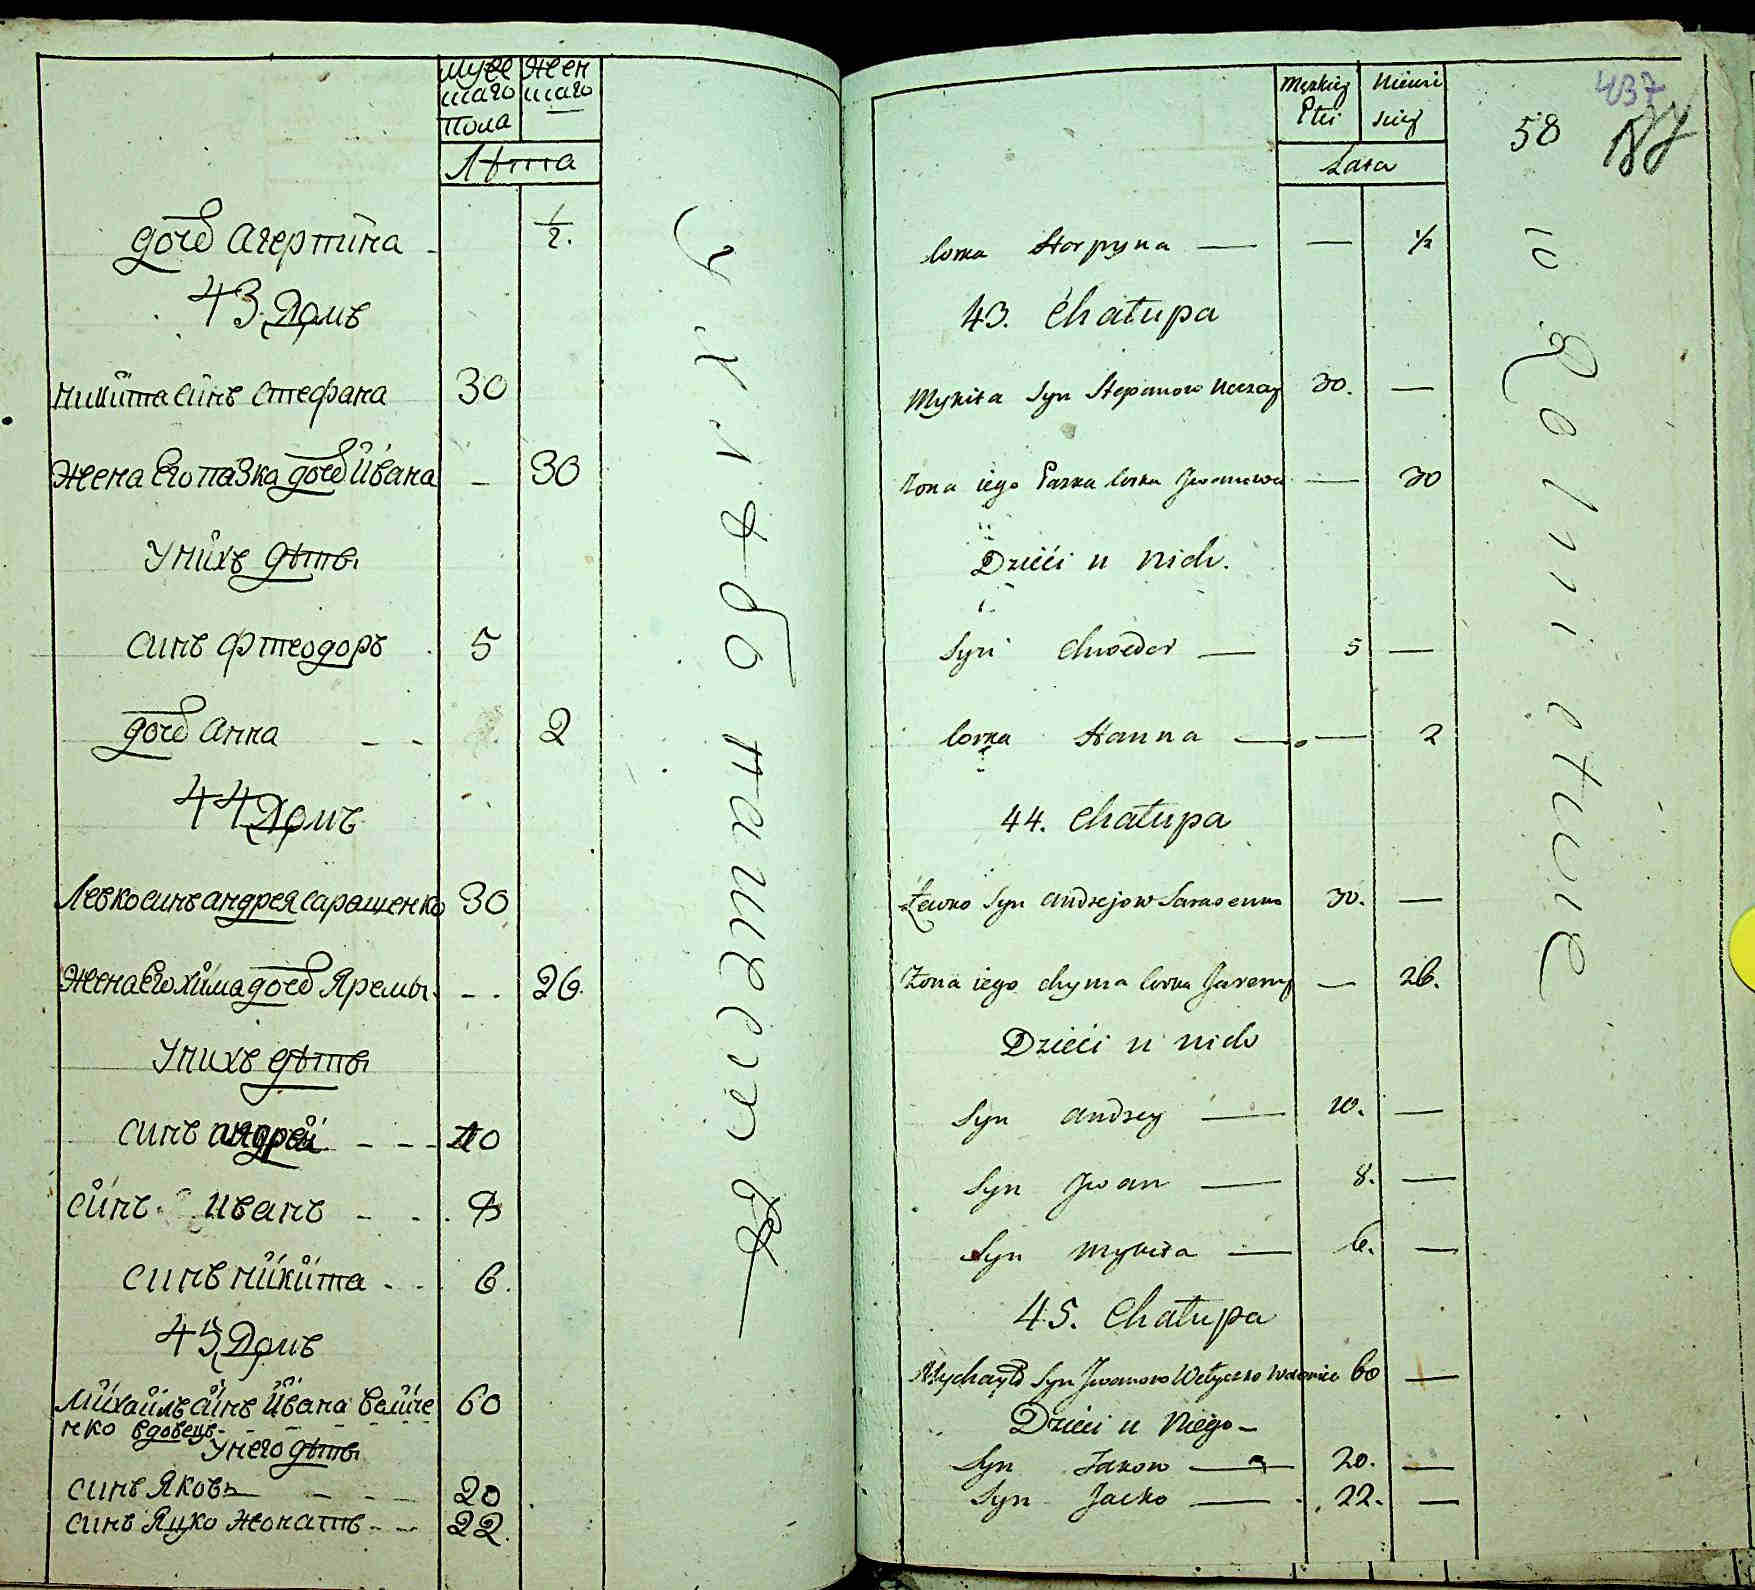 Муже Жен
скаго скаго
Пола
Лѣта
дочь Агерпина 1/2.
43 Домъ
Никита синъ Стефана 30
Жена Его Пазка дочь Ивана — 30
У нихъ дѣты
синъ Фтеодоръ 5
дочь Анна — — 2
44 Домъ
Левко синъ андрея саращенко 30
Жена Его Хима дочь Яремы — 26.
У нихъ дѣты
синъ андрей — — — 10
синъ Иванъ — 8
синъ Никита — 6.
45 Домъ
Михаилъ синъ Ивана Величе 60
нко вдовецъ
У него дѣты
синъ Яковъ — — — 20
синъ Яцко жонатъ — 22.
Męzkiej Niewi
Płci sciey
Lata
58
437
Corka Horpyna — — 1/2
43. Chałupa
Mykita Syn Stepanow 30. —
Żona iego Paska Corka Jwanowa — 30
Dzieci u nich.
Syn Chwedor — 5 —
Corka Hanna — — 2
44. Chałupa
Lewko Syn Andrejow Sarasenko 30. —
Żona iego Chyma Corka Jaremy — 26.
Dzieci u nich
Syn Andrey — 10. —
Syn Jwan — 8. —
Syn Mykita — 6. —
45. Chałupa
Mychayło Syn Jwanow Wełyczko Wdowiec 60 —
Dzieci u Niego —
Syn Jakow — 20. —
Syn Jacko — 22. —